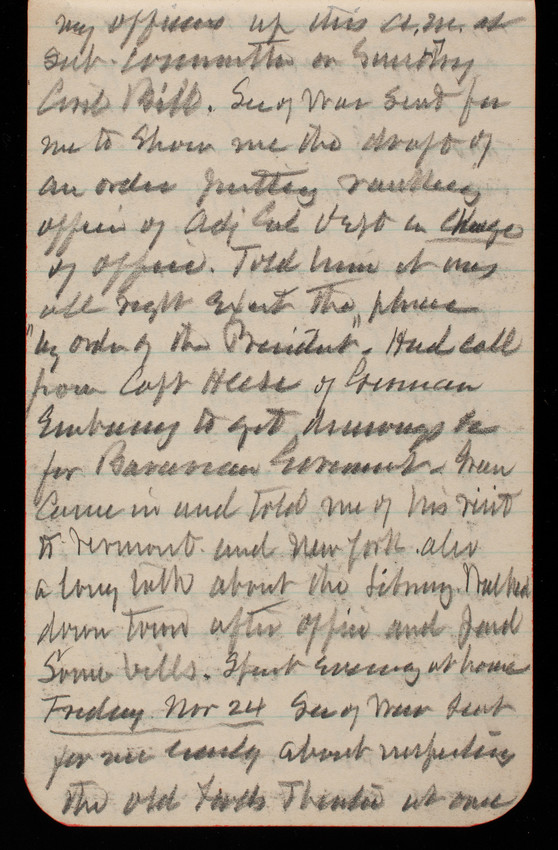 my officers up this a.m. at
Sub-Committee on Sundry
Civil Bill. Sec of War Sent for
me to Show me the draft of
an order putting ranking
officer of Adj Genl Dept in Charge
of office. Told him it was
all right Except the phrase
"by order of the President". Had call
from Capt Heese of German
Embassy to get drawings &c
for Bavarian Government. Green
Came in and told me of his visit
to Vermont and New York also
a long talk about the Library. Walked
down town after office and paid
Some bills. Spent Evening at home
Friday Nov 24 Sec of War Sent
for me early about inspecting
the old Fords Theatre at once